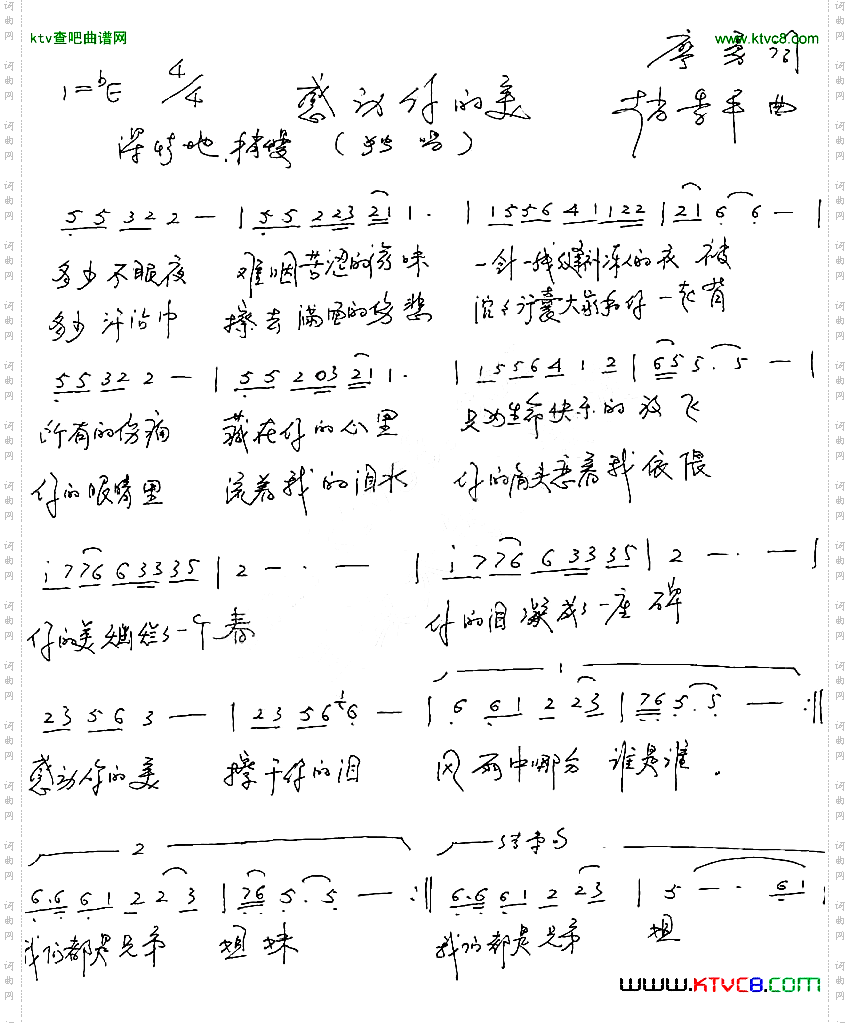 ktv查吧曲谱网 www.ktvc8.com
1=bE 4/4 感动你的美 廖勇词
深情地.稍慢 (独唱) 曲
5 5 3 2 2 — | 5 5 2 2 3 2 1 1 . | 1 5 5 6 4 1 1 2 2 | 2 1 6 6 — |
多少不眠夜 难咽苦涩的滋味 一针一线缝补深的衣被
多少汗沾中 擦去满面的伤悲 沉沉行囊大家和你一起背
5 5 3 2 2 — | 5 5 2 0 3 2 1 1 . | 1 5 5 6 4 1 2 | 6 5 5 . 5 — |
所有的伤痛 藏在你的心里 只为生命快乐的放飞
你的眼睛里 流着我的泪水 你的肩头惹着我依偎
i 7 7 6 6 3 3 3 5 | 2 — . — | i 7 7 6 6 3 3 3 5 | 2 — . — |
你的美绚烂了一个春 你的泪凝成了一座碑
1
2 3 5 6 3 — | 2 3 5 6 6 — | 6 6 1 2 2 3 | 7 6 5 . 5 — :||
感动你的美 擦干你的泪 风雨中哪分谁是谁.
2 结束句
6.6 6 1 2 2 3 | 7 6 5 . 5 — :|| 6.6 6 1 2 2 3 | 5 — . 6 1 |
我们都是兄弟姐妹 我们都是兄弟 姐
www.KTVC8.com